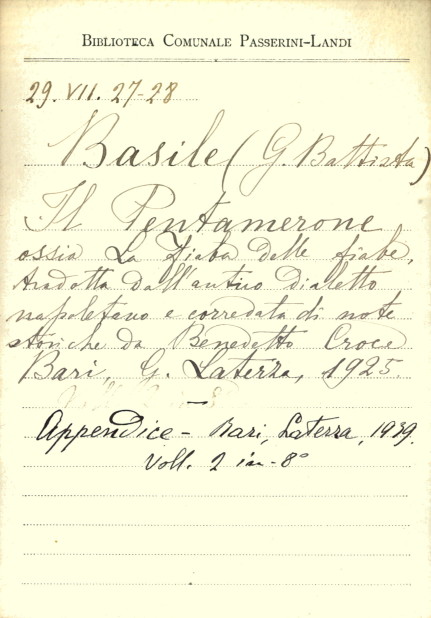 BIBLIOTECA COMUNALE PASSERINI-LANDI
29. VII. 27-28
Basile (G. Battista)
Il Pentamerone
ossia La Fiaba delle fiabe,
tradotta dall'antico dialetto
napoletano e corredata di note
storiche da Benedetto Croce
Bari, G. Laterza, 1925.
—
Appendice - Bari, Laterza, 1939.
Voll. 2 in-8°